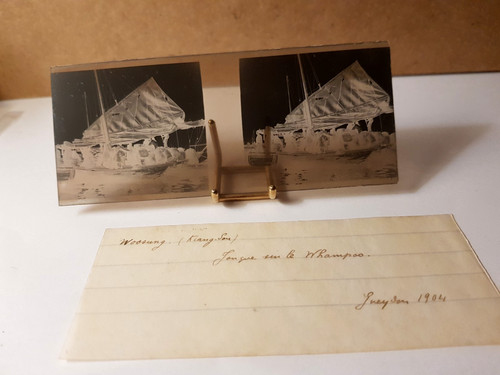 Woosung. (Kiang-Sou)
Jonque sur le Whampoo.
1904